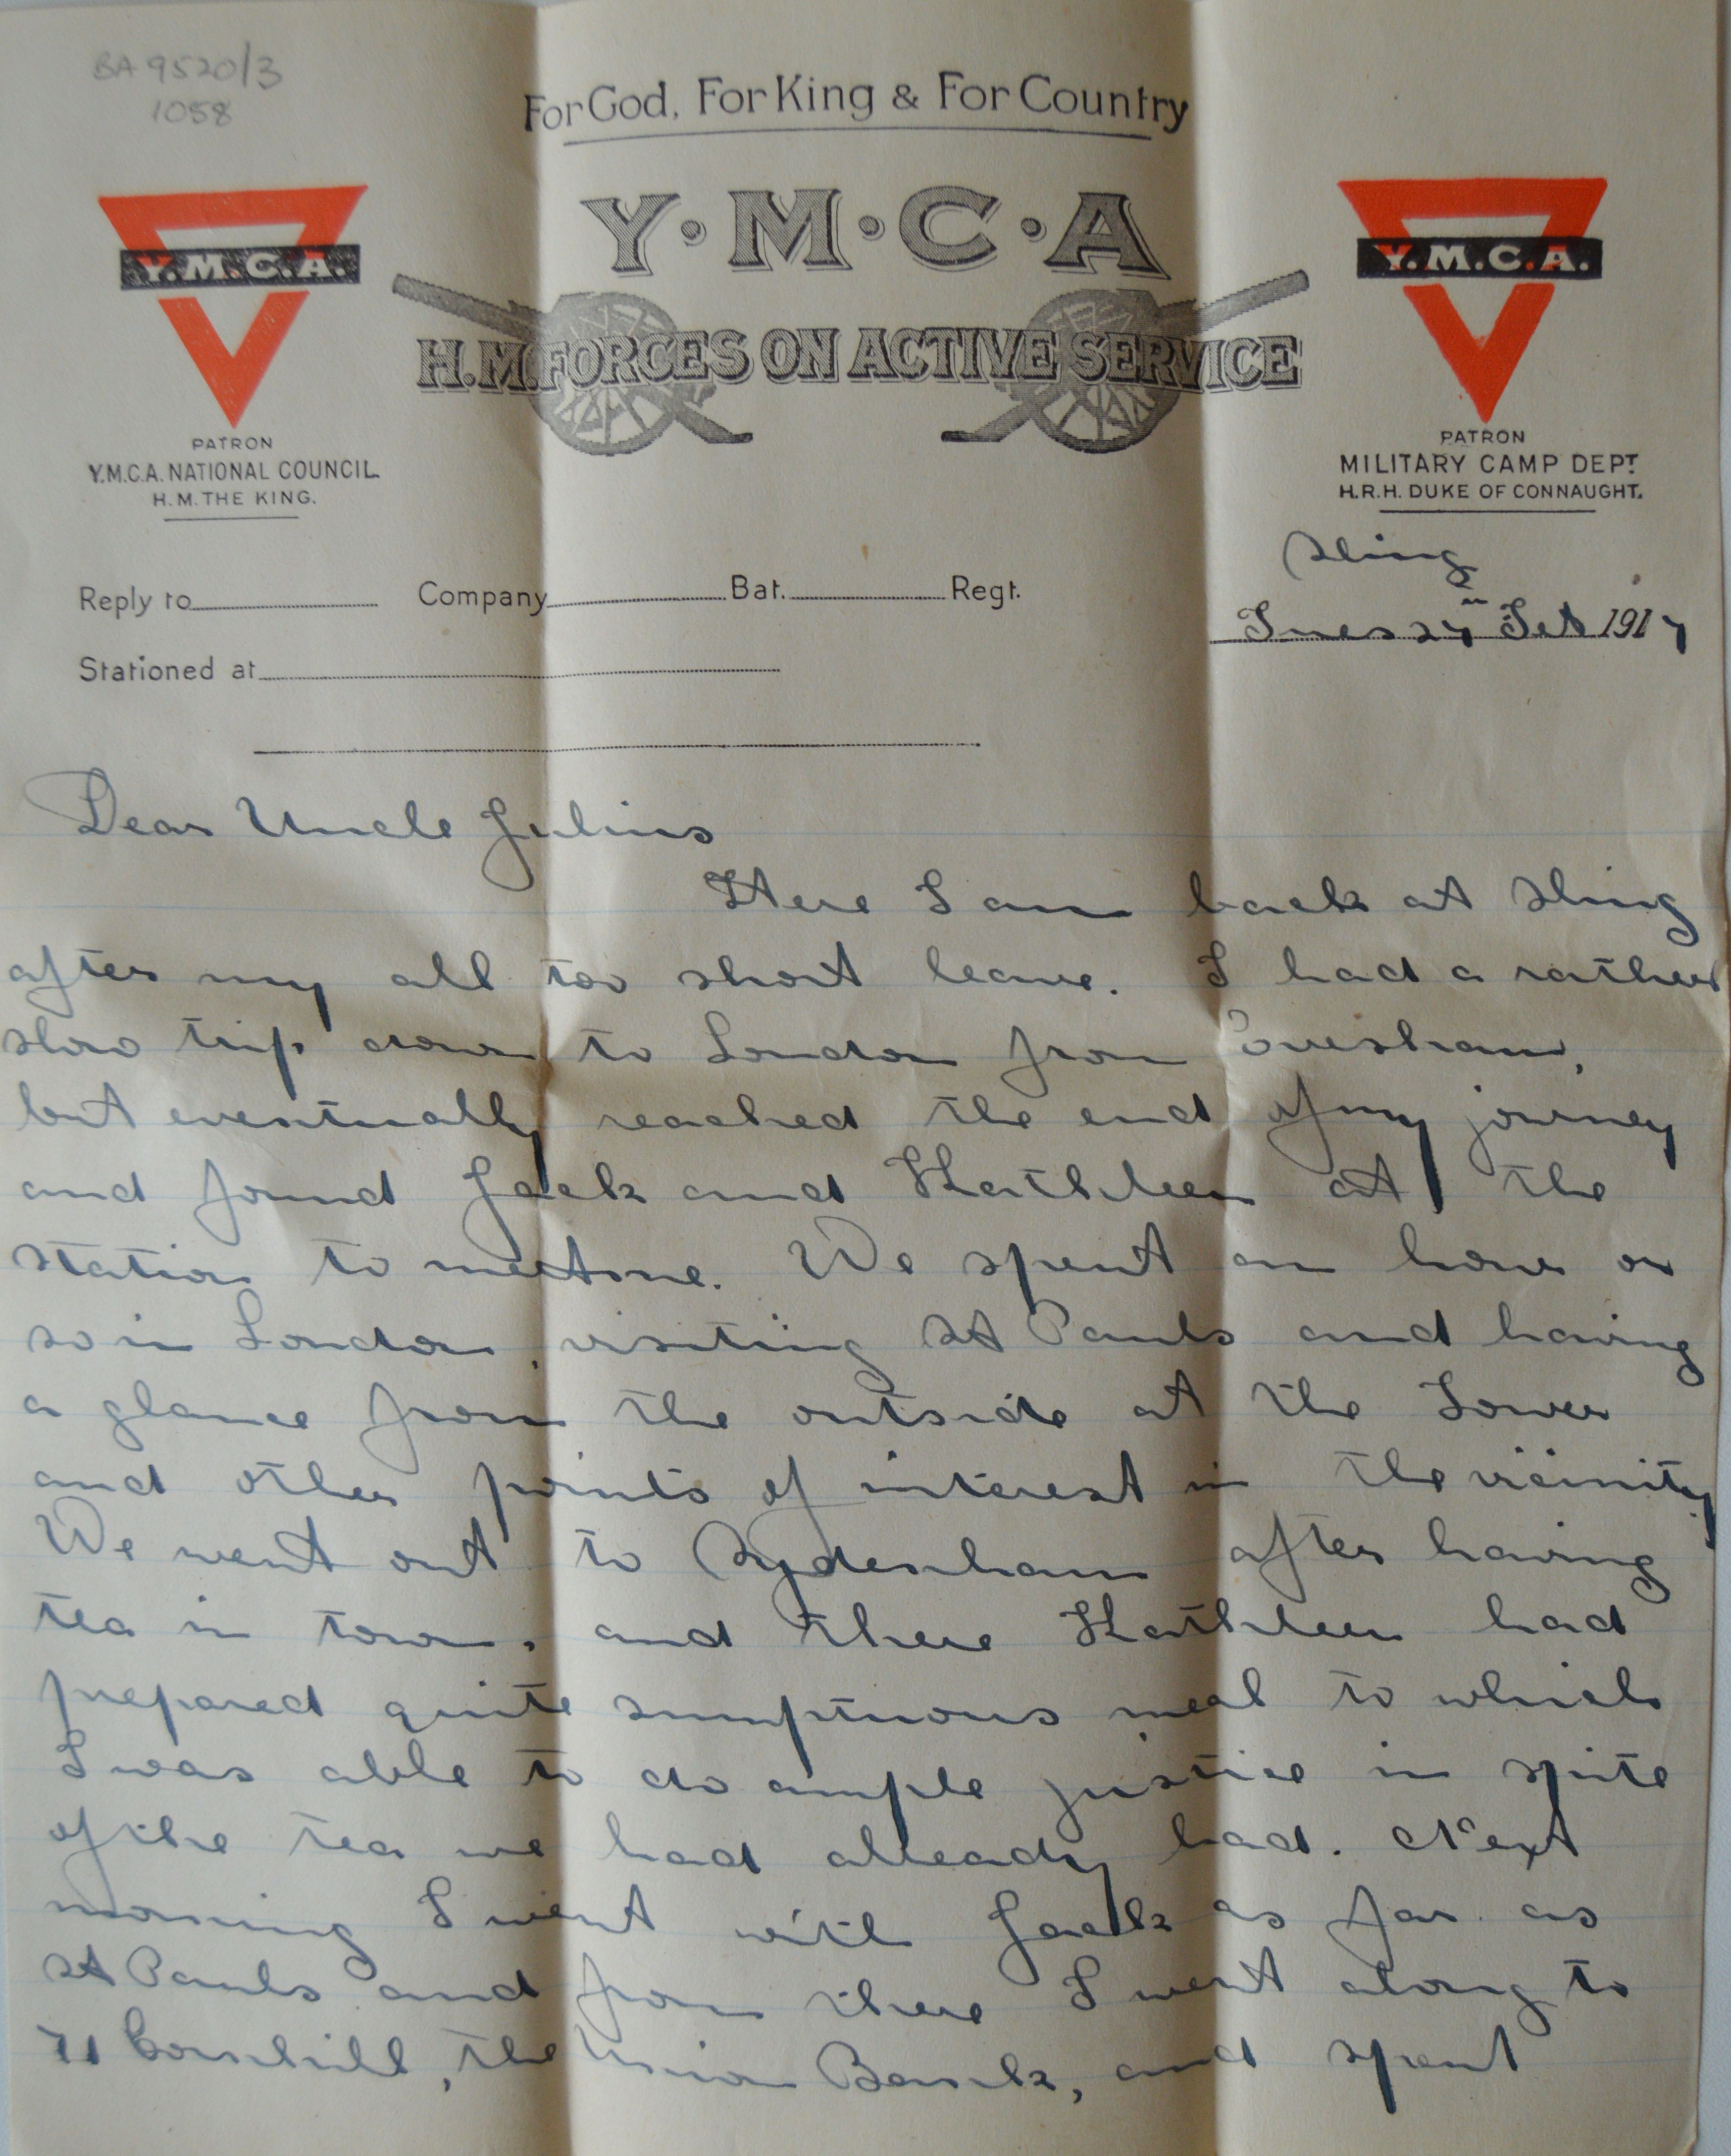 BA 9520/3
1058
For God, For King & For Country
Y·M·C·A
Y.M.C.A.
Y.M.C.A.
H.M. FORCES ON ACTIVE SERVICE
PATRON
Y.M.C.A. NATIONAL COUNCIL
H.M. THE KING.
PATRON
MILITARY CAMP DEPT
H.R.H. DUKE OF CONNAUGHT.
Sling
Reply to Company Bat. Regt.
Tues 27th Feb 1917
Stationed at
Dear Uncle Julius
Here I am back at Sling
after my all too short leave. I had a rather
slow trip down to London from Evesham,
but eventually reached the end of my journey
and found Jack and Kathleen at the
station to meet me. We spent an hour or
so in London, visiting St Pauls and having
a glance from the outside at the Tower
and other points of interest in the vicinity
We went out to Sydenham after having
tea in town, and there Kathleen had
prepared quite sumptuous meal to which
I was able to do ample justice in spite
of the tea we had already had. Next
morning I went with Jack as far as
St Pauls and from there I went along to
71 Cornhill, the Union Bank, and spent